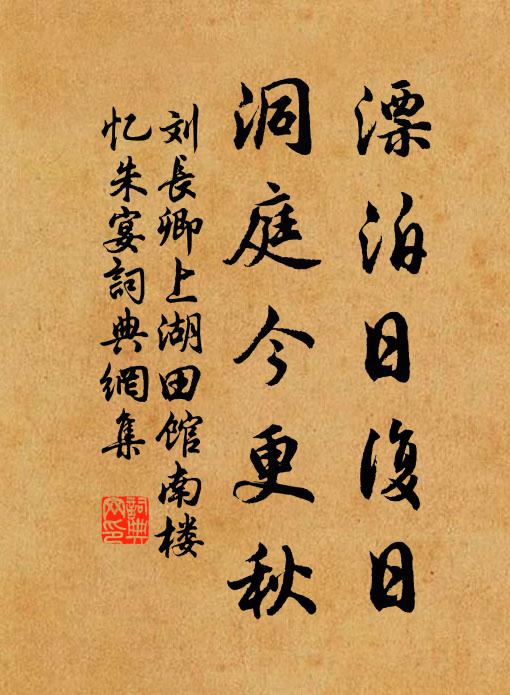 漂泊日复日
洞庭今更秋
刘長卿上湖田馆南楼
忆朱宴詞典網集
詞典
网印